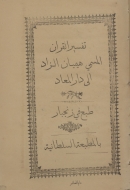 تفسير القرآن
المسمى هميان الزاد
الى دار المعاد
طبع في زنجبار
بالمطبعة السلطانية